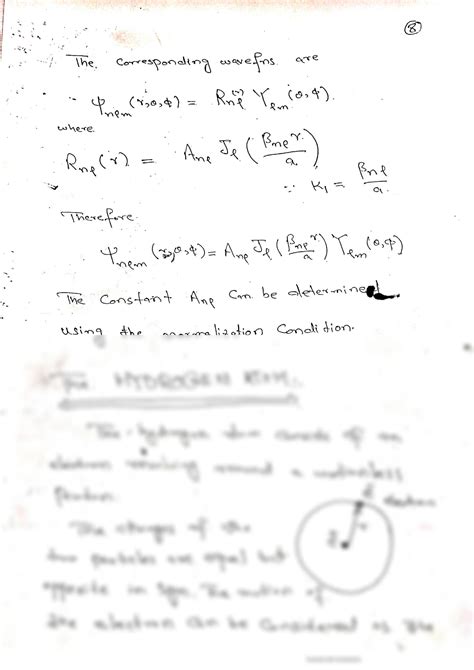 ⑧
The corresponding wavefns are
∴ Ψnlm (r,θ,φ) = Rnl(r) Ylm (θ,φ).
where
Rnl (r) = Anl Jl (βnl r / a)
∵ K1 = βnl / a
Therefore
Ψnlm (r,θ,φ) = Anl Jl (βnl r / a) Ylm (θ,φ)
The Constant Anl Can be determined
using the normalization Condition.
The HYDROGEN ATOM
The hydrogen atom consists of an
electron revolving around a motionless
electron
The charges of the
two particles are equal but
opposite in sign. The motion of
the electron can be Considered as the